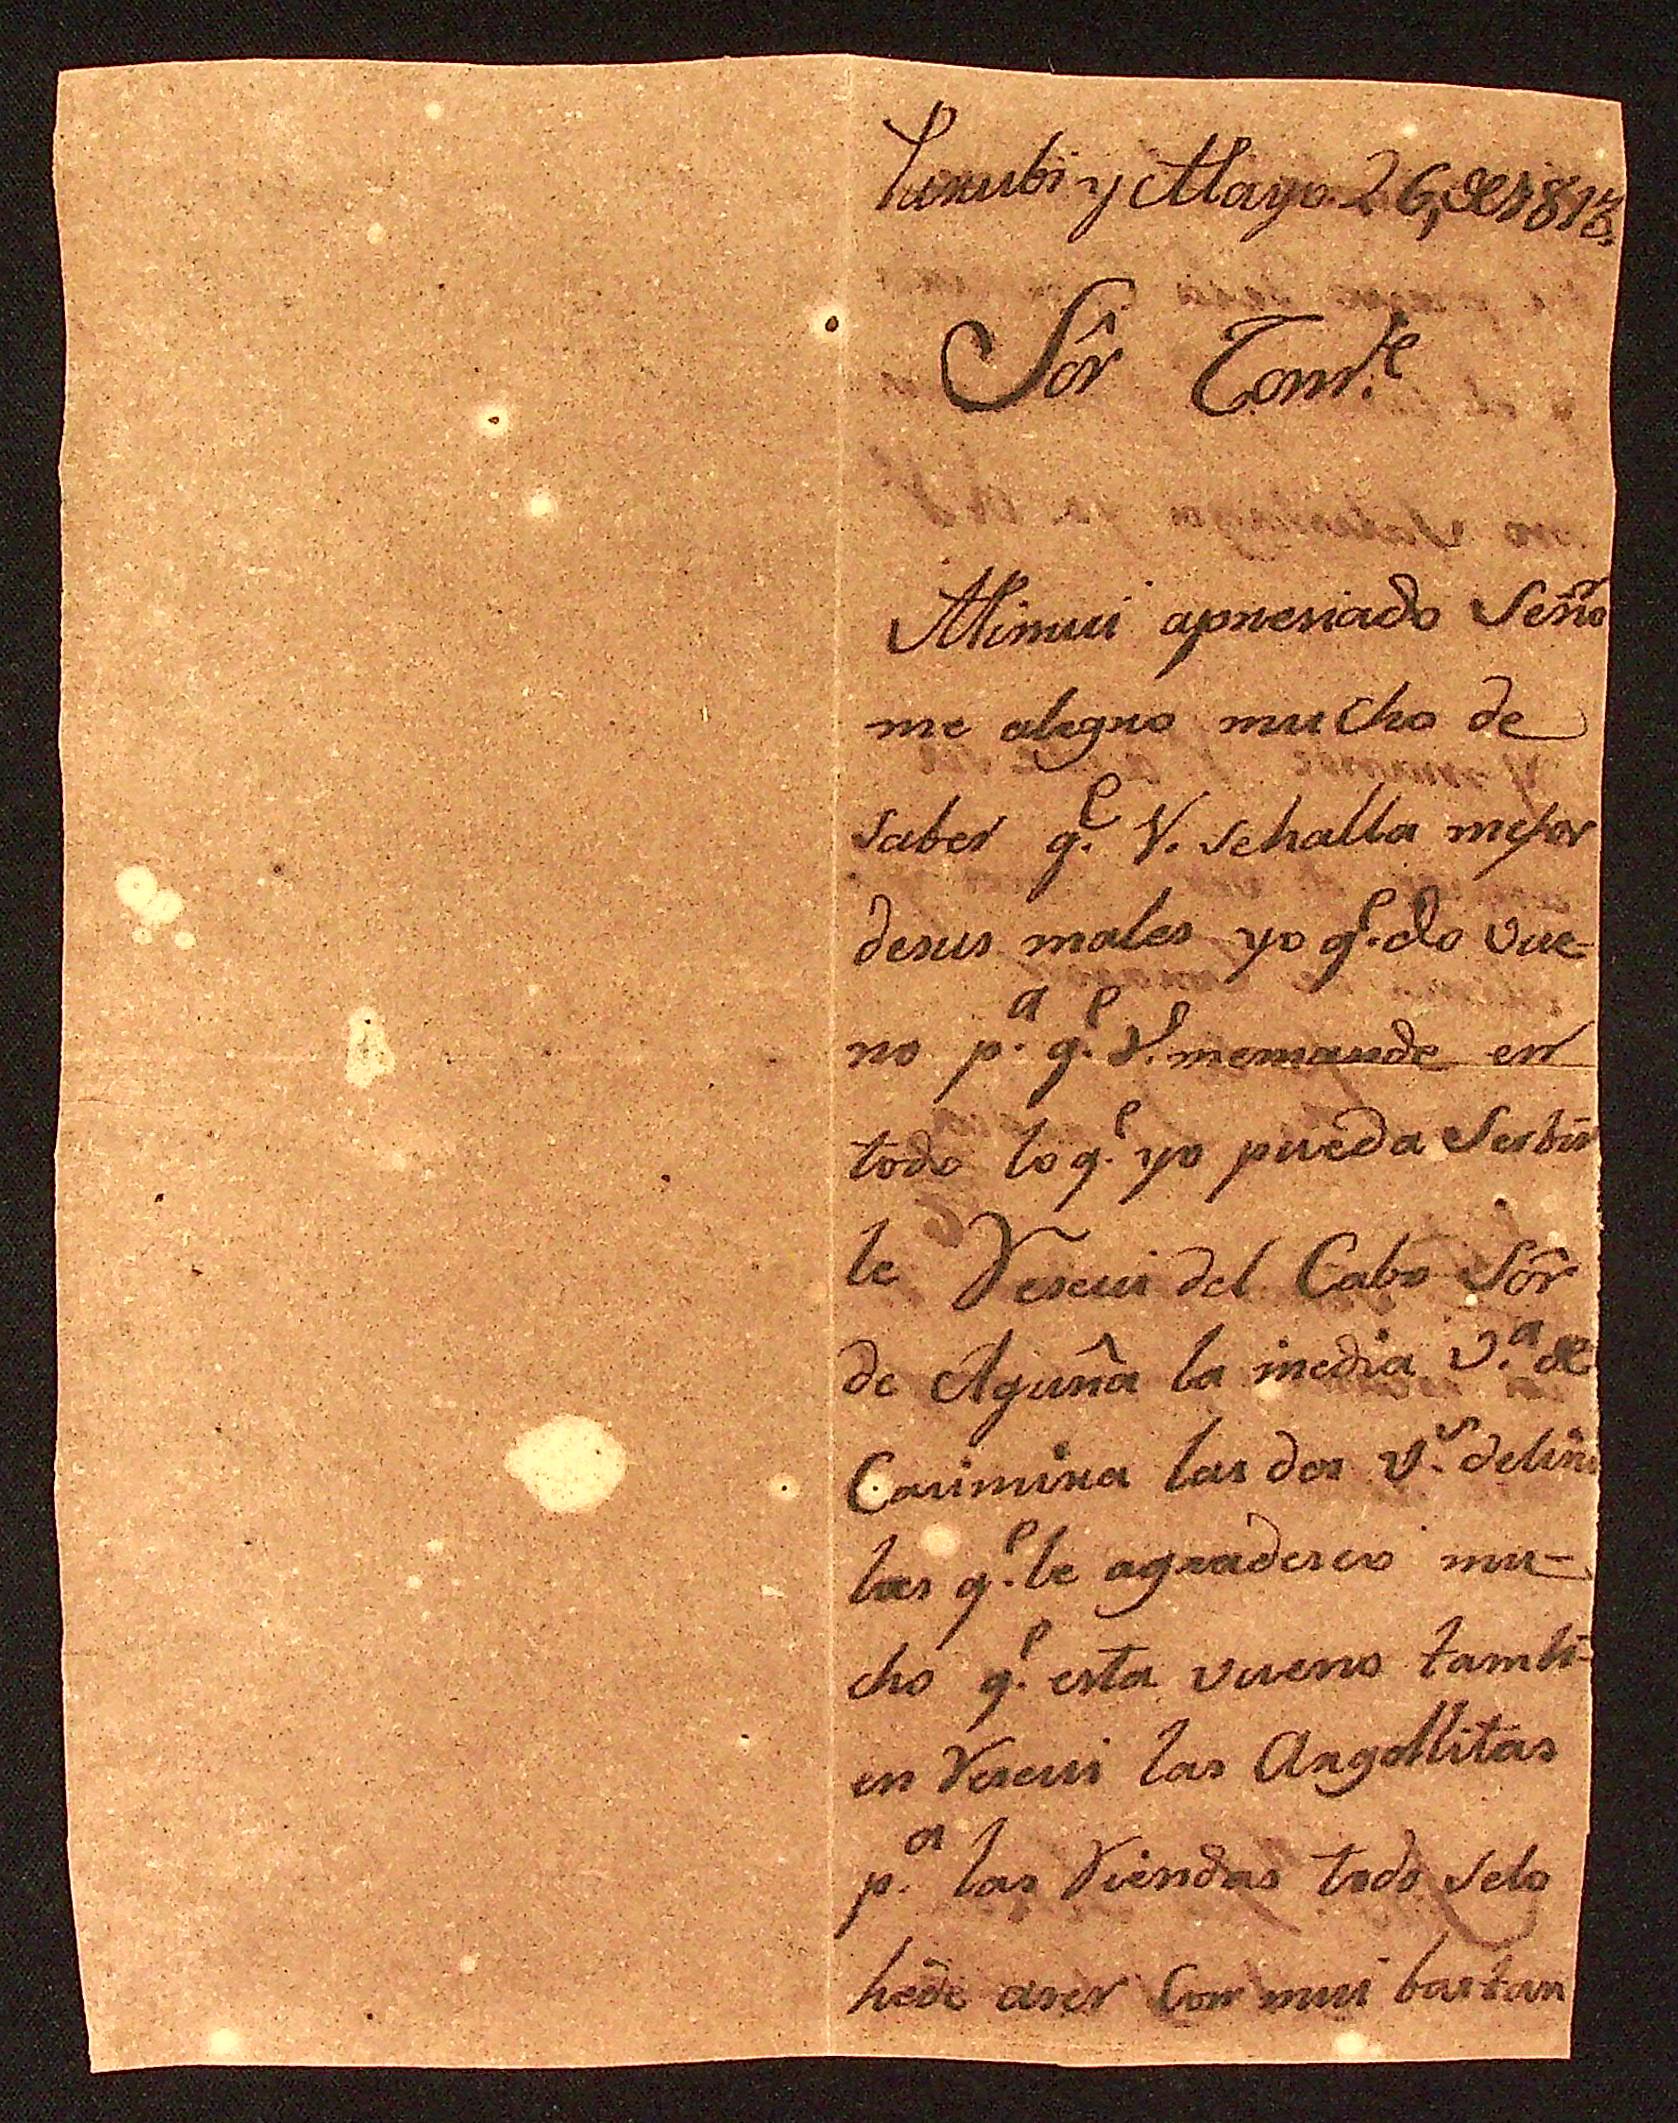 Tunubi y Mayo 26, de 1813
Sôr Tom.te
Mimui apresiado Señor
me alegro mucho de
saber q.e V. sehalla mejor
desus males yo q.edo vue-
no p.a q.e V. memande en
todo lo q.e yo pueda Serbir
le Reseui del Cabo Sôr
de Aguña la media v.a de
Casimira las dos v.s de
las q.e le agradesco mu-
cho q.e esta vueno tambi-
en Reseui las Argollitas
p.a las Riendas todo selo
hede aser con mui bastan